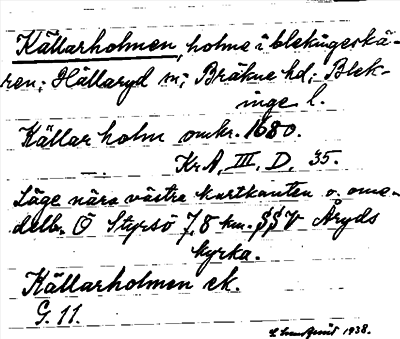 Källarholmen, holme i blekingeskä-
ren; Hällaryd sn; Bräkne hd; Blek-
inge l.
Källar holm omkr. 1680.
KrA, III, D, 35.
Läge nära västra kartkanten o. ome-
delb. Ö Styrsö 7,8 km. SSV Åryds
kyrka.
Källarholmen ek.
G. 11.
1938.